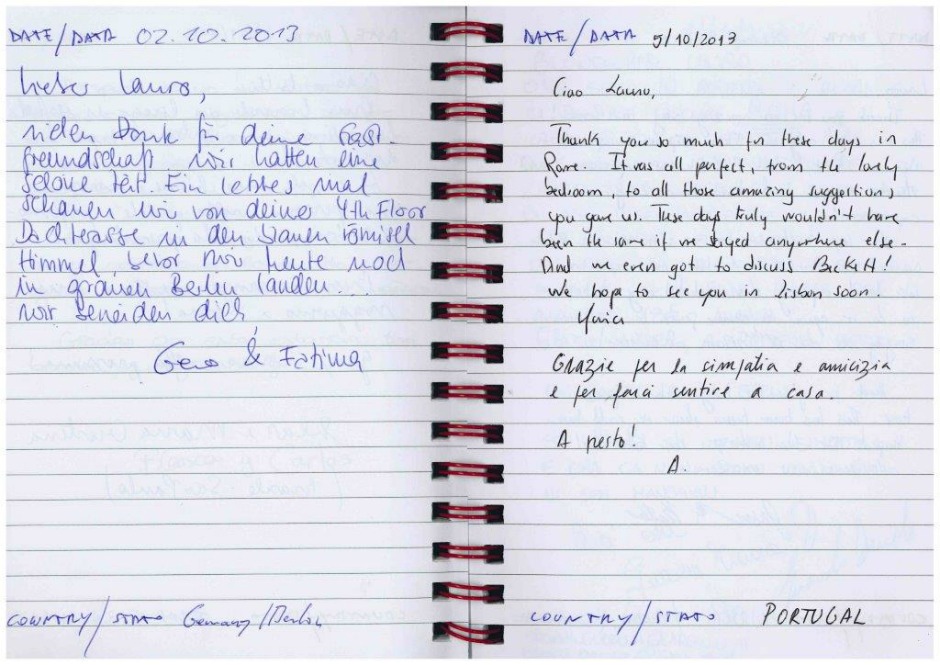 DATE/DATA 02.10.2013
Lieber Lauro,
vielen Dank für deine Gast-
freundschaft wir hatten eine
schöne Zeit. Ein letztes mal
schauen wir von deiner 4th Floor
Dachterasse in den blauen römischen
Himmel, bevor wir heute noch
in grauen Berlin landen...
wir beneiden dich,
& Fatima
COUNTRY/STATO Germany/Berlin
DATE/DATA 5/10/2013
Ciao Lauro,
Thank you so much for these days in
Rome. It was all perfect, from the lovely
bedroom, to all those amazing suggestions
you gave us. These days truly wouldn't have
been the same if we stayed anywhere else.
And we even got to discuss Beckett!
We hope to see you in Lisbon soon.
Maria
Grazie per la simpatia e amicizia
e per farci sentire a casa.
A presto!
A.
COUNTRY/STATO PORTUGAL